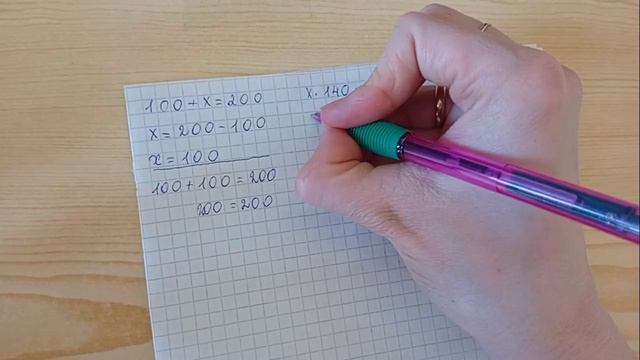 100 + x = 200
x = 200 - 100
x = 100
100 + 100 = 200
200 = 200
x · 140